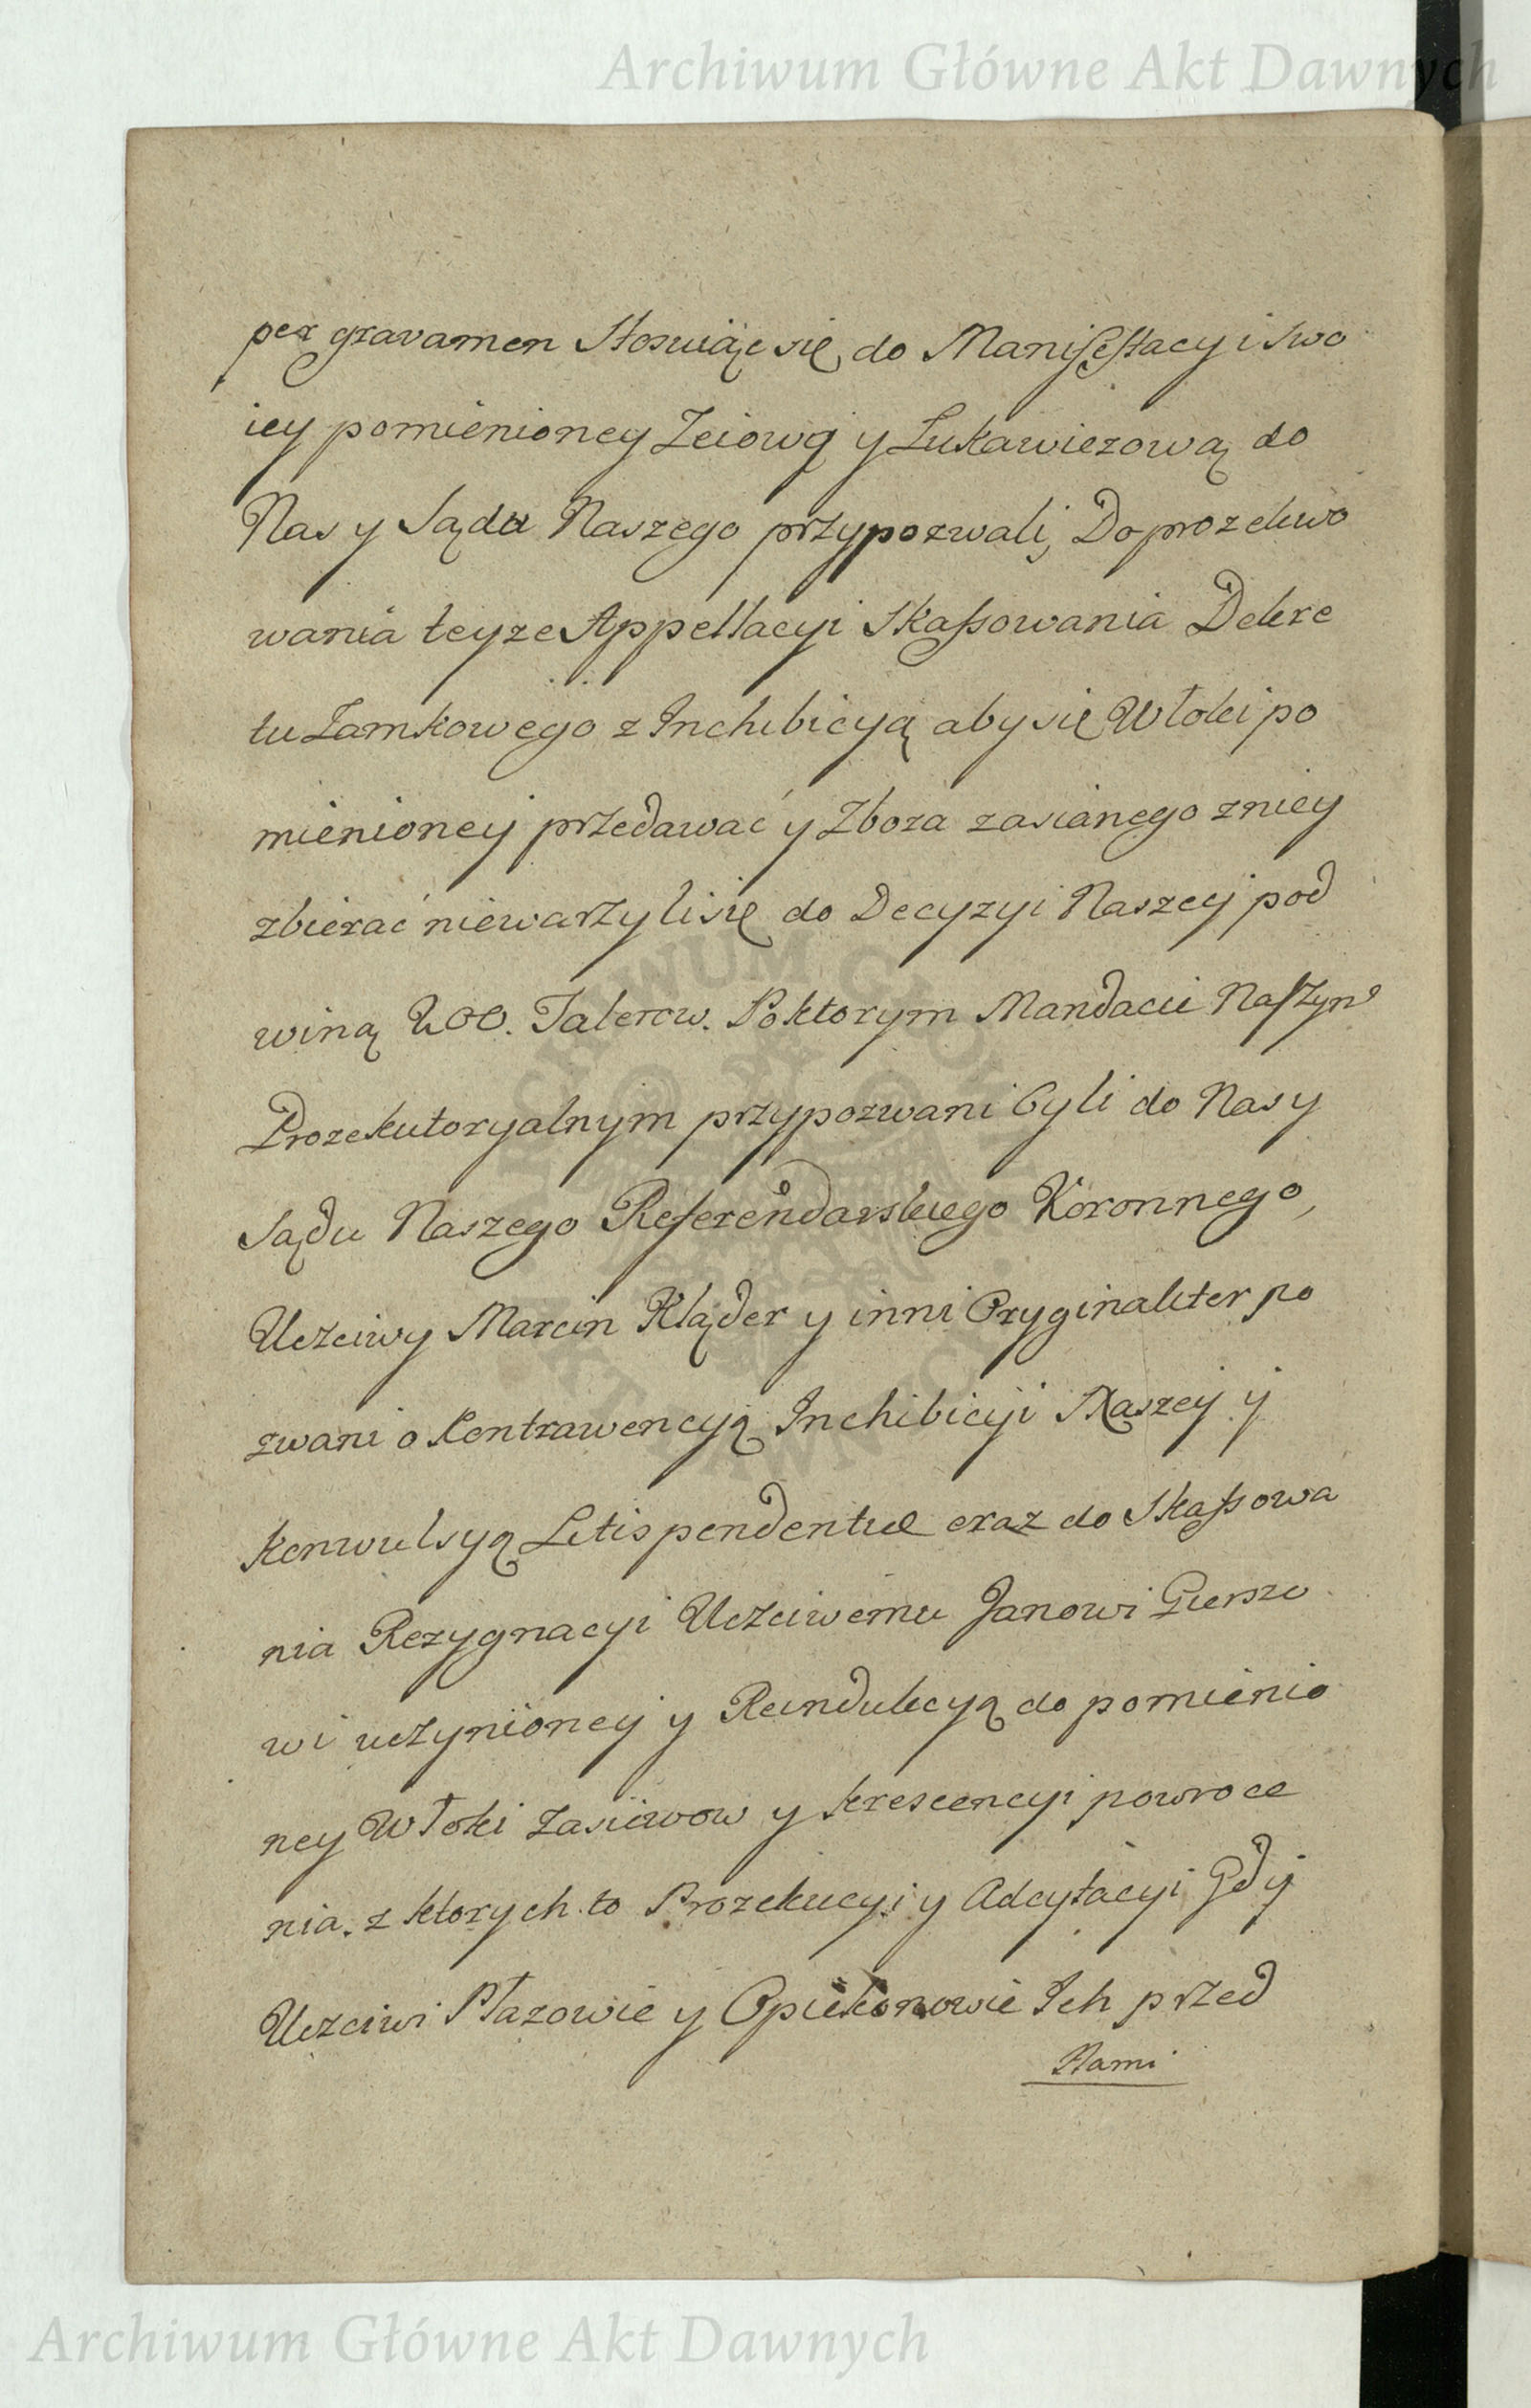 Archiwum Główne Akt Dawnych
per gravamen Stosuiąc się do Manifestacyi swo
iey pomienioney Zeiową y Łukawiezową do
Nas y Sądu Naszego przypozwali, Do prozekwo
wania teyze Appellacyi Skassowania Dekre
tu Zamkowego z Inchibicyą aby się Włoki po
mienioney przedawać y Zboza zasianego zniey
zbierać niewarzyli się do Decyzyi Naszey pod
winą 200. Talerow. Poktorym Mandacie Naszym
Prozekutoryalnym przypozwani byli do Nas y
Sądu Naszego Referendarskiego Koronnego,
Uczciwy Marcin Kląder y inni Oryginaliter po
zwani o Kontrawencyą Inchibicyi Naszey y
Konwulsyą Litispendentiæ oraz do Skassowa
nia Rezygnacyi Uczciwemu Janowi Gierszo
wi uczynioney y Reindukcyą do pomienio
ney Włoki Zasiewow y krescencyi powroce
nia. z ktorych to Prozekucyi y Adcytacyi Gdy
Uczciwi Płazowie y Opiekonowie Ich przed
Nami
Archiwum Główne Akt Dawnych